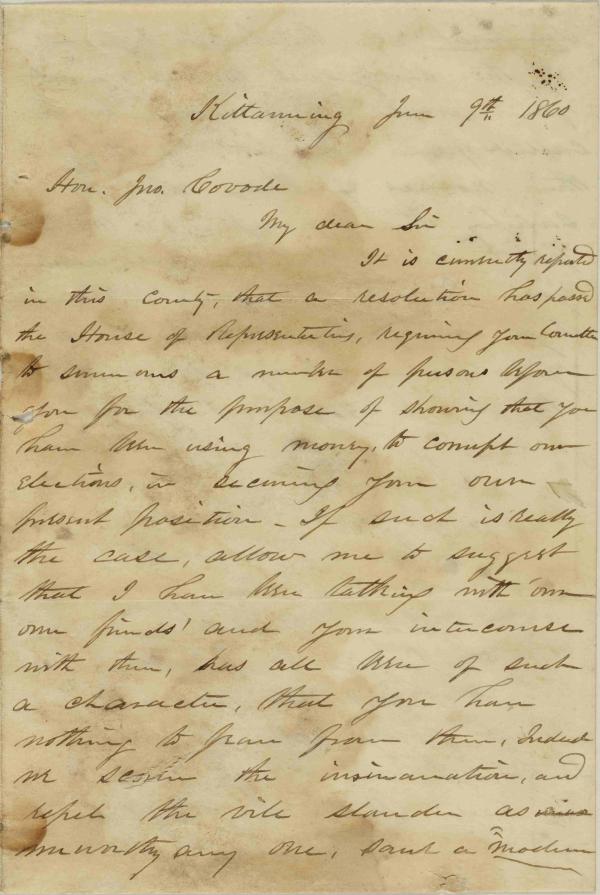 Kittanning June 9th 1860
Hon. Jno. Covode
My dear Sir
It is currently reported
in this County, that a resolution has passed
the House of Representatives, requiring your Committee
to summons a number of persons before
you for the purpose of showing that you
have been using money, to corrupt our
Elections, in securing your own
present position - If such is really
the case, allow me to suggest
that I have been talking with 'our
own friends' and your intercourse
with them, has all been of such
a character, that you have
nothing to fear from them, Indeed
we scorn the insinuation, and
repel the vile slander as
unworthy any one, save a "modern